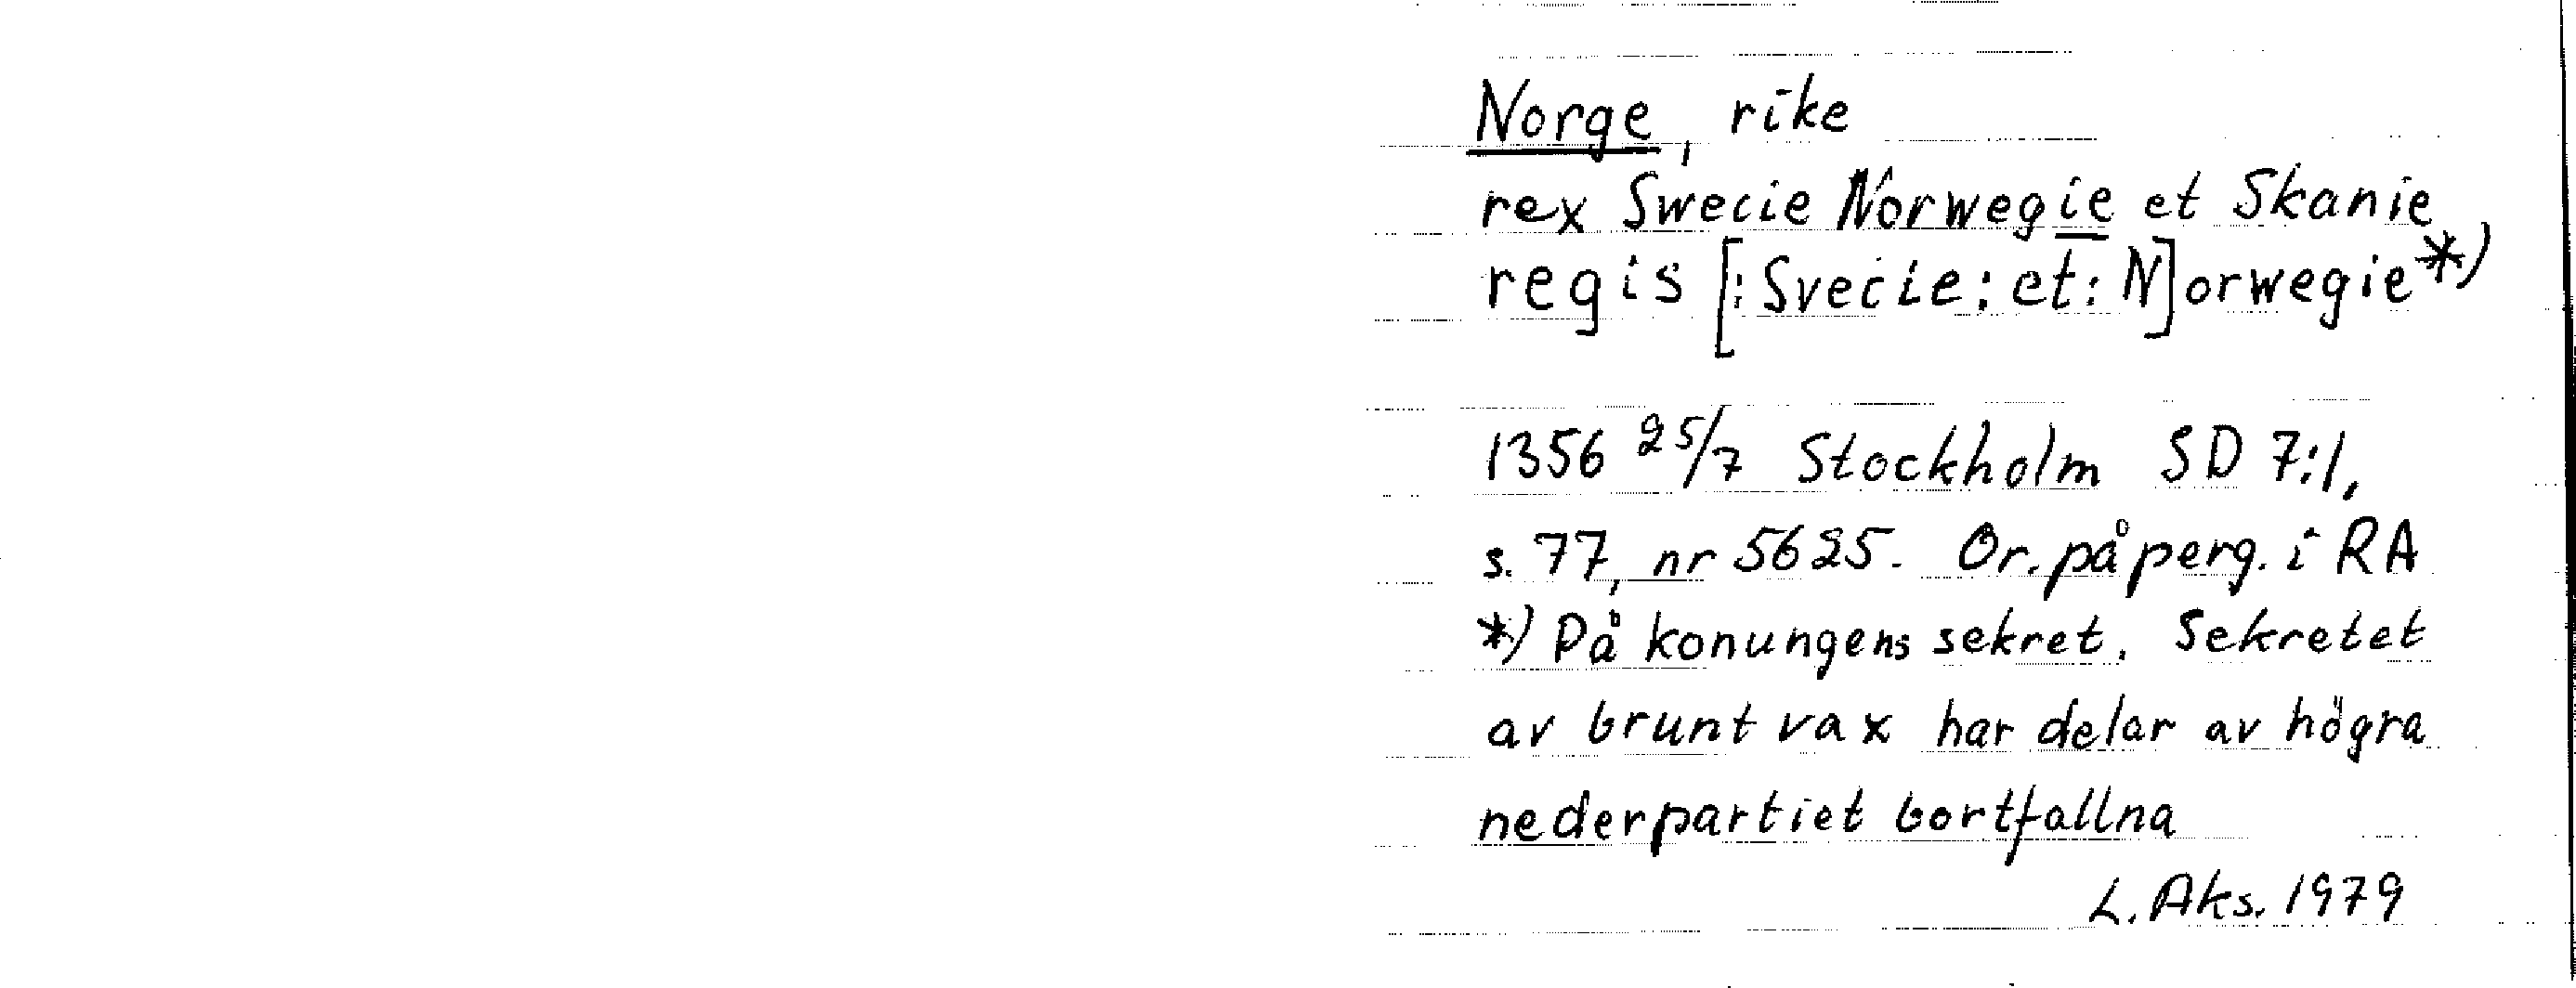 Norge, rike
rex Swecie Norwegie et Skanie
regis [: Svecie : et : N]orwegie *)
1356 25/7 Stockholm SD 7:1,
s. 77, nr 5625. Or. på perg. i RA
*) På konungens sekret. Sekretet
av brunt vax har delar av högra
nederpartiet bortfallna
L. Aks. 1979